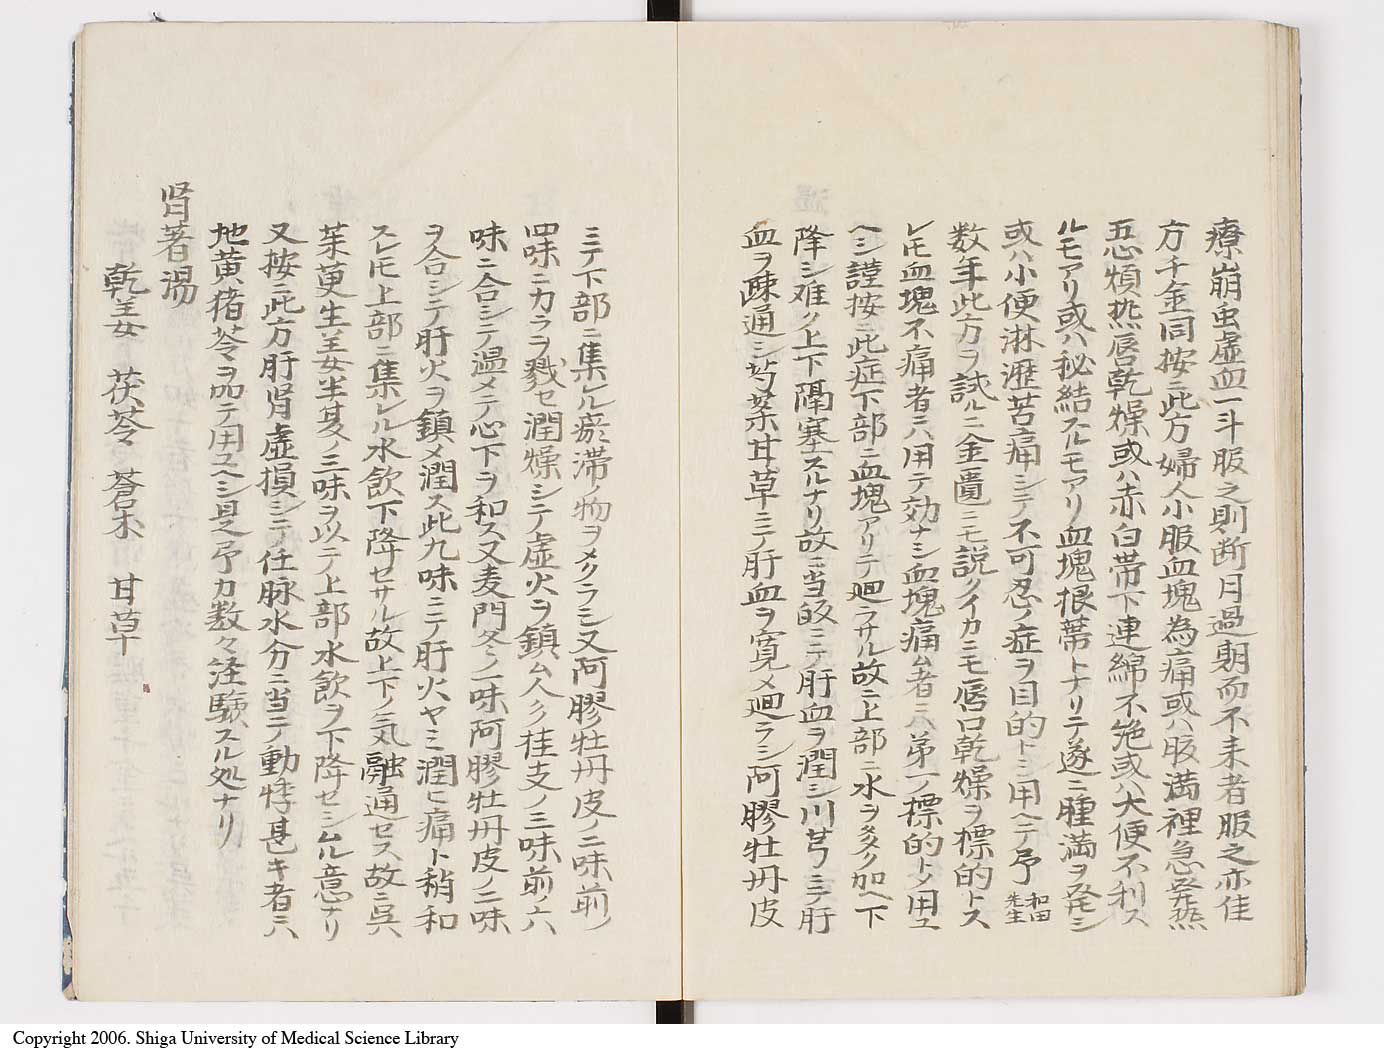 療崩虫虚血一斗服之則断月過期而不来者服之亦佳
方千金同按ニ此方婦人小腹血塊為痛或ハ腹満裡急発熱
五心煩熱唇乾燥或ハ赤白帯下連綿不絶或ハ大便不利ス
ルモアリ或ハ秘結スルモアリ血塊根蒂トナリテ遂ニ腫満ヲ発シ
或ハ小便淋瀝苦痛シテ不可忍ノ症ヲ目的トシ用ヘテ予和田先生
数年此方ヲ試ルニ金匱ニモ説クイカニモ唇口乾燥ヲ標的トス
レモ血塊不痛者ニハ用テ効ナシ血塊痛ム者ニハ第一ノ標的トメ用ユ
ヘシ謹按ニ此症下部ニ血塊アリテ廻ラサル故ニ上部ニ水ヲ多ク加ヘ下
降シ难ク上下隔塞スルナリ故ニ当皈ニテ肝血ヲ潤シ川芎ニテ肝
血ヲ疎通シ芍薬甘草ニテ肝血ヲ寛メ廻ラシ阿膠牡丹皮
ニテ下部ニ集ル瘀滞ノ物ヲメクラシ又阿膠牡丹皮ノ二味前ノ
四味ニカラヲ戮セ潤燥シテ虚火ヲ鎮ム人参桂支ノ三味前ノ六
味ニ合シテ温メテ心下ヲ和ス又麦門冬ノ一味阿膠牡丹皮ノ二味
ヲ合シテ肝火ヲ鎮メ潤ス此九味ニテ肝火ヤミ潤ヒ痛ト稍和
スレトモ上部ニ集レル水飲下降セサル故上下ノ気融通セス故ニ呉
茱萸生姜半夏ノ三味ヲ以テ上部水飲ヲ下降セシムル意ナリ
又按ニ此方肝腎虚損シテ任脉水分ニ当テ動悸甚キ者ニハ
地黄猪苓ヲ加テ用ユヘシ是予カ数々経験スル処ナリ
肾著湯
乾姜　茯苓　蒼朮　甘草
Copyright 2006. Shiga University of Medical Science Library